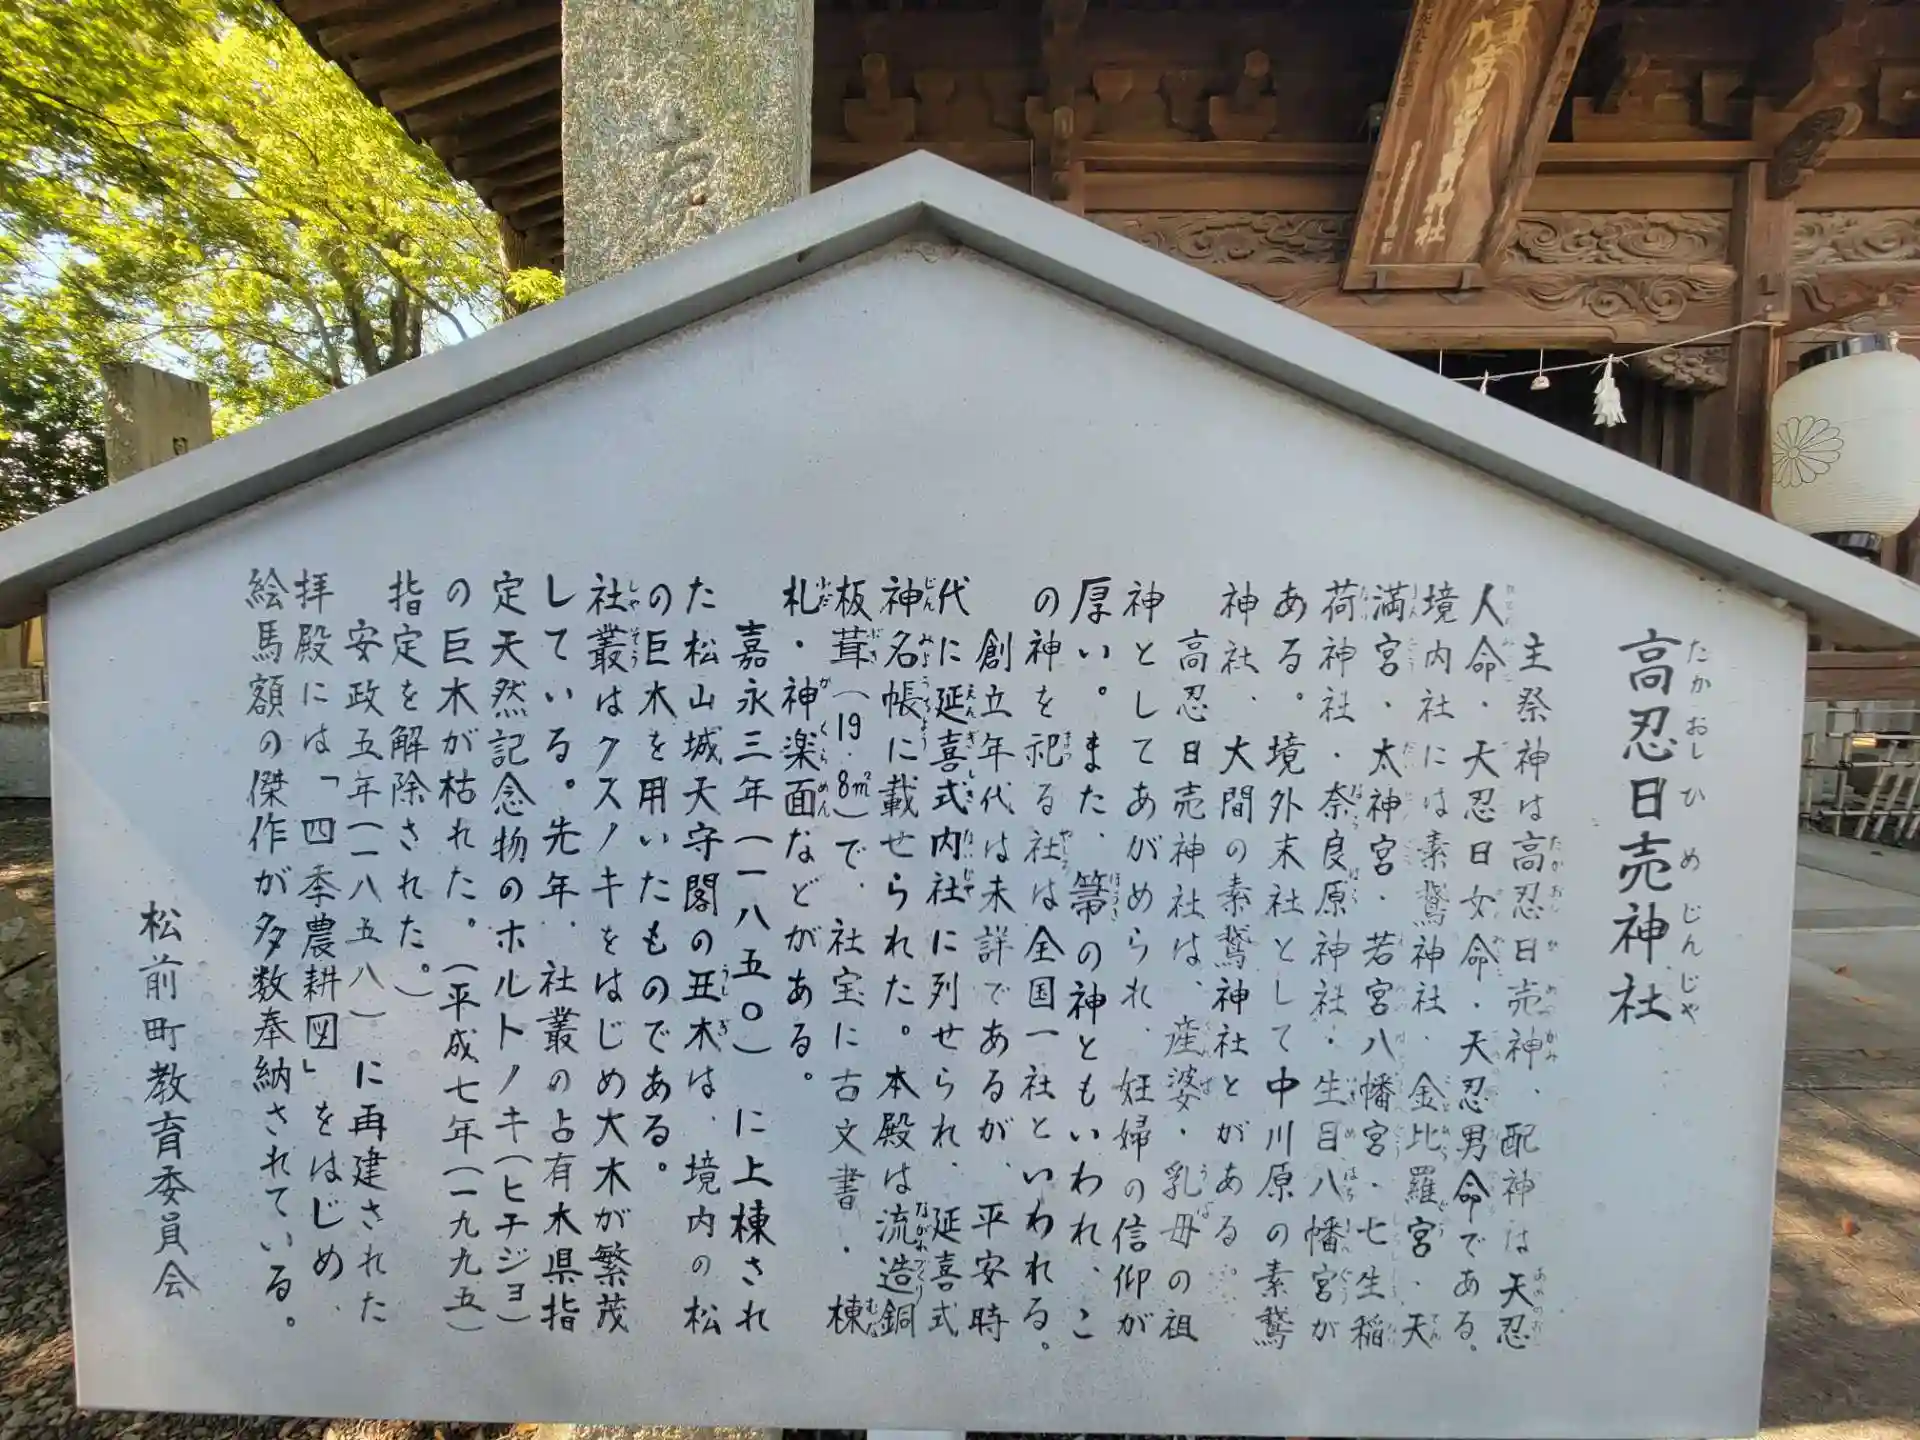 高忍日売神社
たかおしひめじんじゃ
主祭神は高忍日売神、配神は天忍
人命・天忍日女命・天忍男命である。
境内社には素鵞神社、金比羅宮・天
満宮・太神宮・若宮八幡宮・七生稲
荷神社・奈良原神社・生目八幡宮が
ある。境外末社として中川原の素鵞
神社、大間の素鵞神社とがある。
高忍日売神社は、産婆・乳母の祖
神としてあがめられ、妊婦の信仰が
厚い。また、箒の神ともいわれ、こ
の神を祀る社は全国一社といわれる。
創立年代は未詳であるが、平安時
代に延喜式内社に列せられ、延喜式
神名帳に載せられた。本殿は流造銅
板茸(19.8㎡)で、社宝に古文書・棟
札・神楽面などがある。
嘉永三年(一八五〇)に上棟され
た松山城天守閣の丑木は、境内の松
の巨木を用いたものである。
社叢はクスノキをはじめ大木が繁茂
している。先年、社叢の占有木県指
定天然記念物のホルトノキ(ヒチジョ)
の巨木が枯れた。(平成七年(一九九五)
指定を解除された。)
安政五年(一八五八)に再建された
拝殿には「四季農耕図」をはじめ、
絵馬額の傑作が多数奉納されている。
松前町教育委員会